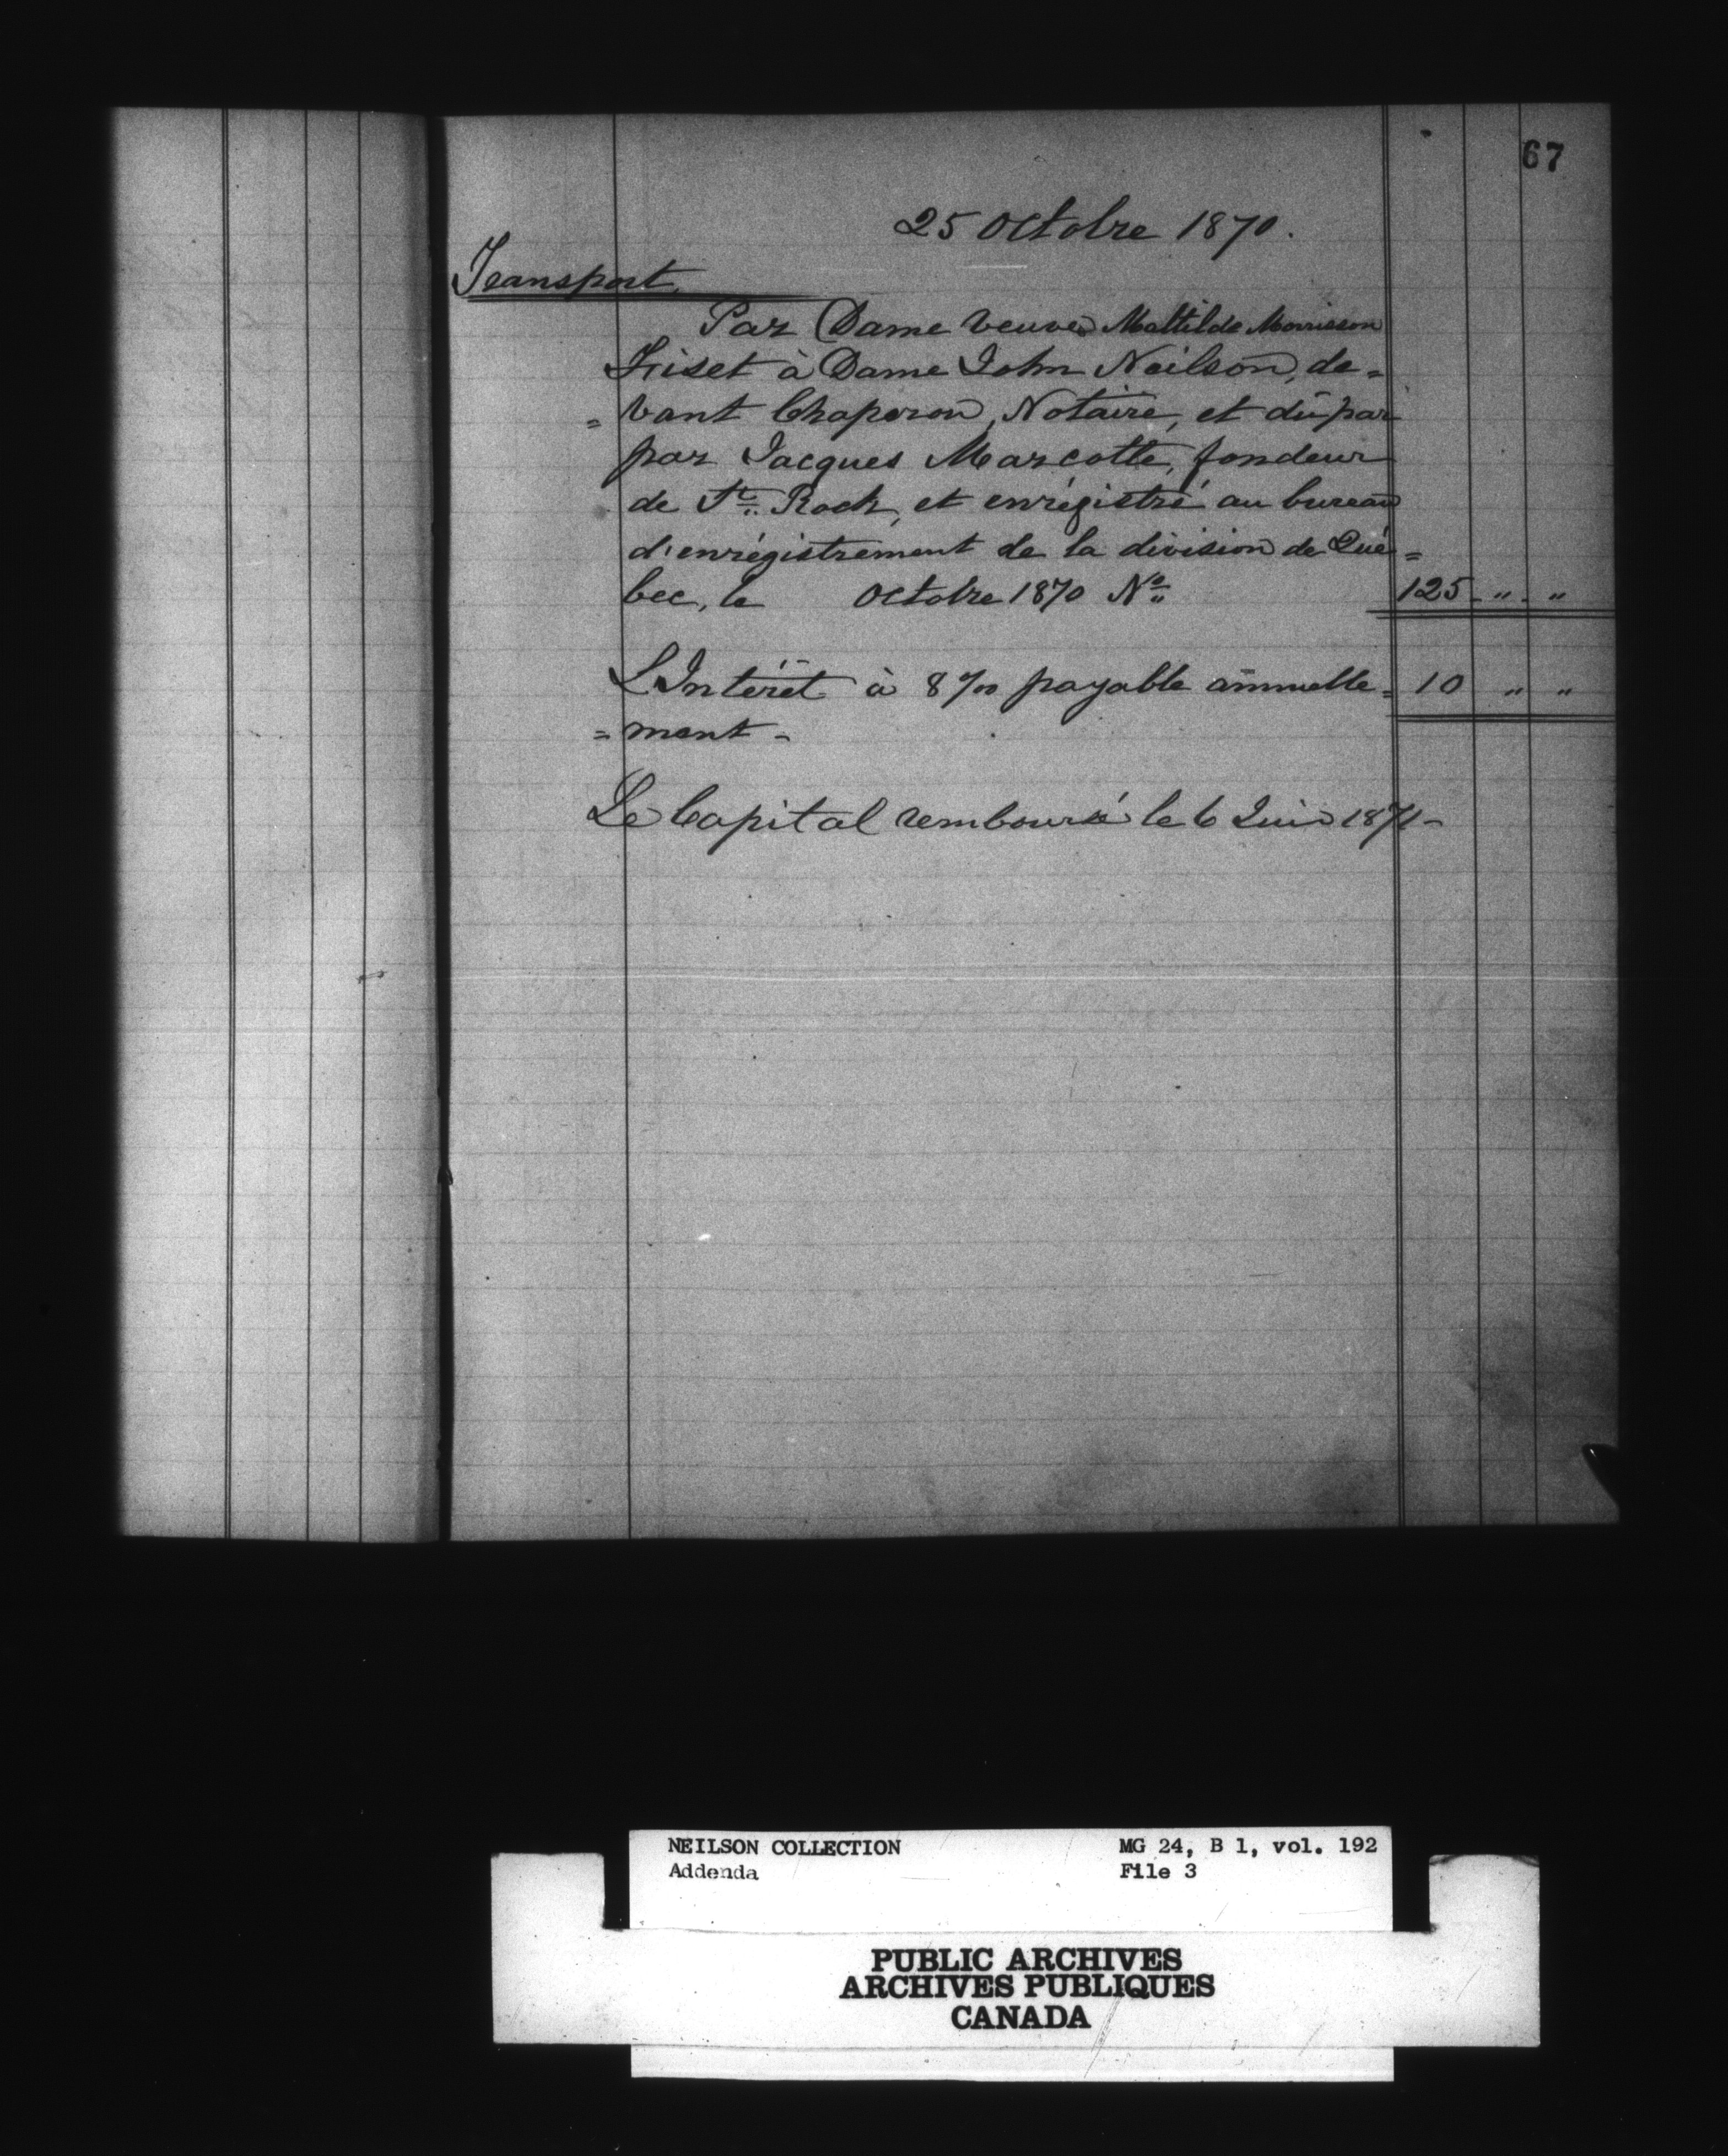 67
25 Octobre 1870.
Transport
Par Dame veuve Mathilde Morrisson
Fiset à Dame John Neilson, de=
=vant Chaperon, Notaire, et dû par
par Jacques Marcotte, fondeur
de St. Roch, et enrégistré au bureau
d'enrégistrement de la division de Qué=
bec, le octobre 1870 No 125 " "
L'Intérêt à 8 % payable annuelle= 10 " "
=ment -
Le Capital remboursé le 6 Juin 1871 -
NEILSON COLLECTION MG 24, B 1, vol. 192
Addenda File 3
PUBLIC ARCHIVES
ARCHIVES PUBLIQUES
CANADA